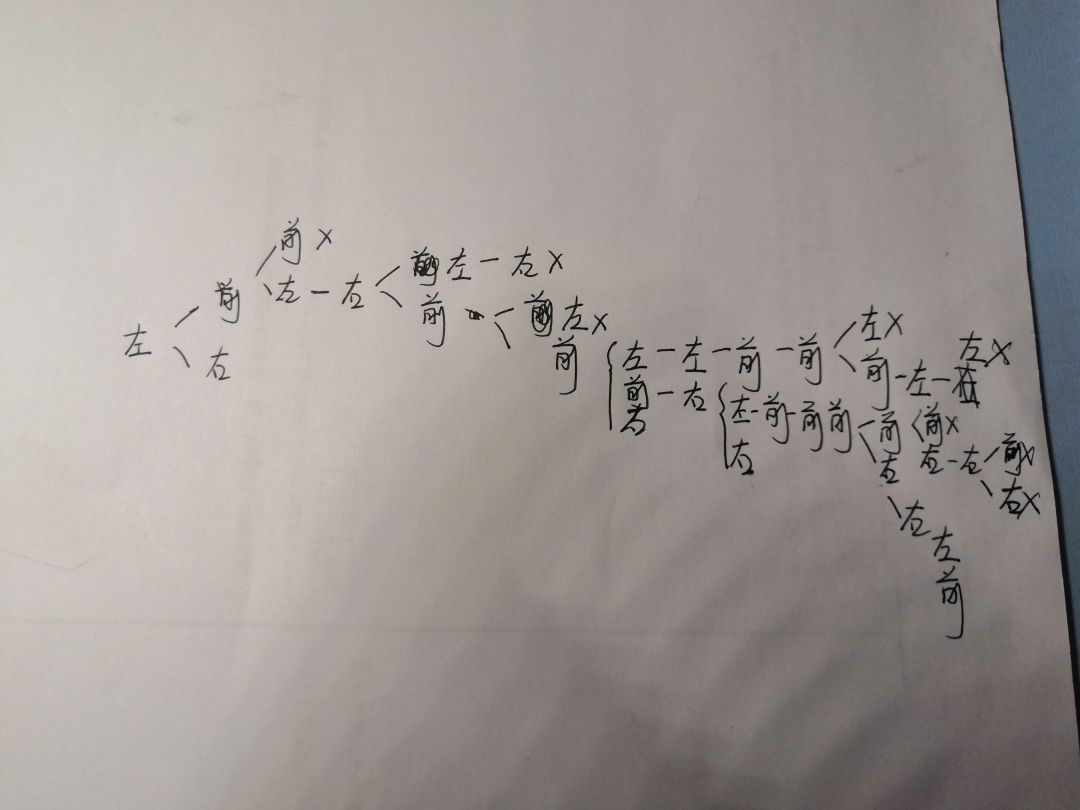 前×
左＜前＜左－右＜左－右×
右
前＜左×
前
左－左－前－前＜左×
前－左－右
左×
前－右
右
左－前－前前＜前＜前×
右
右
左－右＜前×
右×
右
左
前